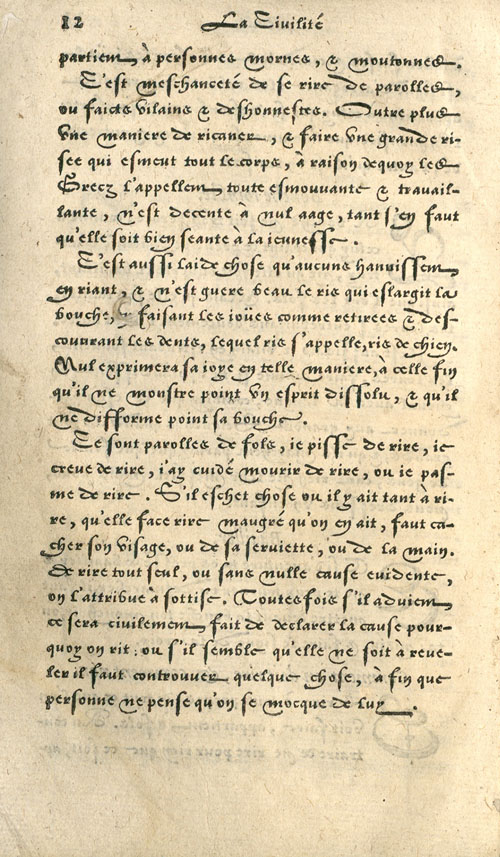 12 La Civilité
partient à personnes mornes, & moutonnes.
C'est meschanceté de se rire de parolles,
ou faicts vilains & deshonnestes. Outre plus
vne maniere de ricaner, & faire vne grande ri-
see qui esmeut tout le corps, à raison dequoy les
Grecz l'appellent toute esmouvante & travail-
lante, n'est decente à nul aage, tant s'en faut
qu'elle soit bien seante à la ieunesse.
C'est aussi laide chose qu'aucuns hannissent
en riant, & n'est guere beau le ris qui eslargit la
bouche, & faisant les ioües comme retirees & des-
couurant les dents, lequel ris s'appelle, ris de chien.
Nul exprimera sa ioye en telle maniere, à celle fin
qu'il ne monstre point vn esprit dissolu, & qu'il
ne difforme point sa bouche.
Ce sont parolles de fols, ie pisse de rire, ie
creve de rire, i'ay cuidé mourir de rire, ou ie pas-
me de rire. S'il eschet chose ou il y ait tant à ri-
re, qu'elle face rire maugré qu'on en ait, faut ca-
cher son visage, ou de sa serviette, ou de la main.
de rire tout seul, ou sans nulle cause evidente,
on l'attribue à sottise. Toutesfois s'il advient
ce sera civilement fait de declarer la cause pour-
quoy on rit: ou s'il semble qu'elle ne soit à reve-
ler il faut controuver quelque chose, à fin que
personne ne pense qu'on se mocque de luy.